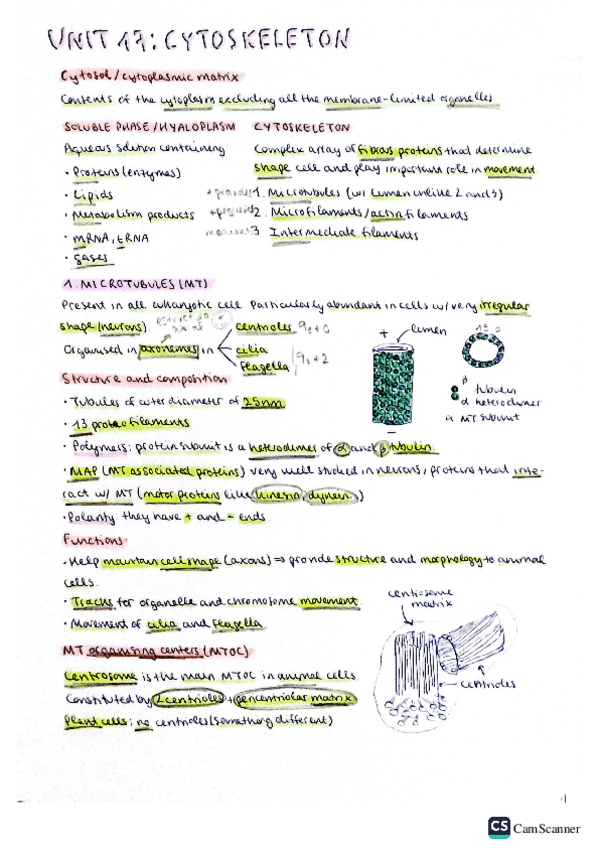 UNIT 17: CYTOSKELETON
Cytosol / cytoplasmic matrix
Contents of the cytoplasm excluding all the membrane-limited organelles
SOLUBLE PHASE / HYALOPLASM
Aqueous solution containing:
· Proteins (enzymes)
· Lipids
· Metabolism products
· mRNA, tRNA
· gases
CYTOSKELETON
Complex array of fibrous proteins that determine
shape cell and play important role in movement
1. Microtubules (w/ lumen unlike 2 and 3)
2. Microfilaments / actin filaments
3 Intermediate filaments
1. MICROTUBULES (MT)
Present in all eukaryotic cell. Particularly abundant in cells w/ very irregular
shape (neurons).
Organised in axonemes in
centrioles 9₃+0
cilia
flagella 9₂+2
+ lumen
13
-
β tubulin
α heterodimer
a MT subunit
Structure and composition
· Tubules of outer diameter of 25nm
· 13 protofilaments
· Polymers: protein subunit is a heterodimer of α and β tubulin
· MAP (MT associated proteins) very well studied in neurons, proteins that inte-
ract w/ MT (motor proteins like kinesin, dynein)
· Polarity they have + and - ends
Functions
· Help maintain cell shape (axons) ⇒ provide structure and morphology to animal
cells.
· Tracks for organelle and chromosome movement
· Movement of cilia and flagella
MT organising centers (MTOC)
Centrosome is the main MTOC in animal cells
Constituted by 2 centrioles + pericentriolar matrix
Plant cells: no centrioles (something different)
centrosome
matrix
centrioles
1
CS CamScanner